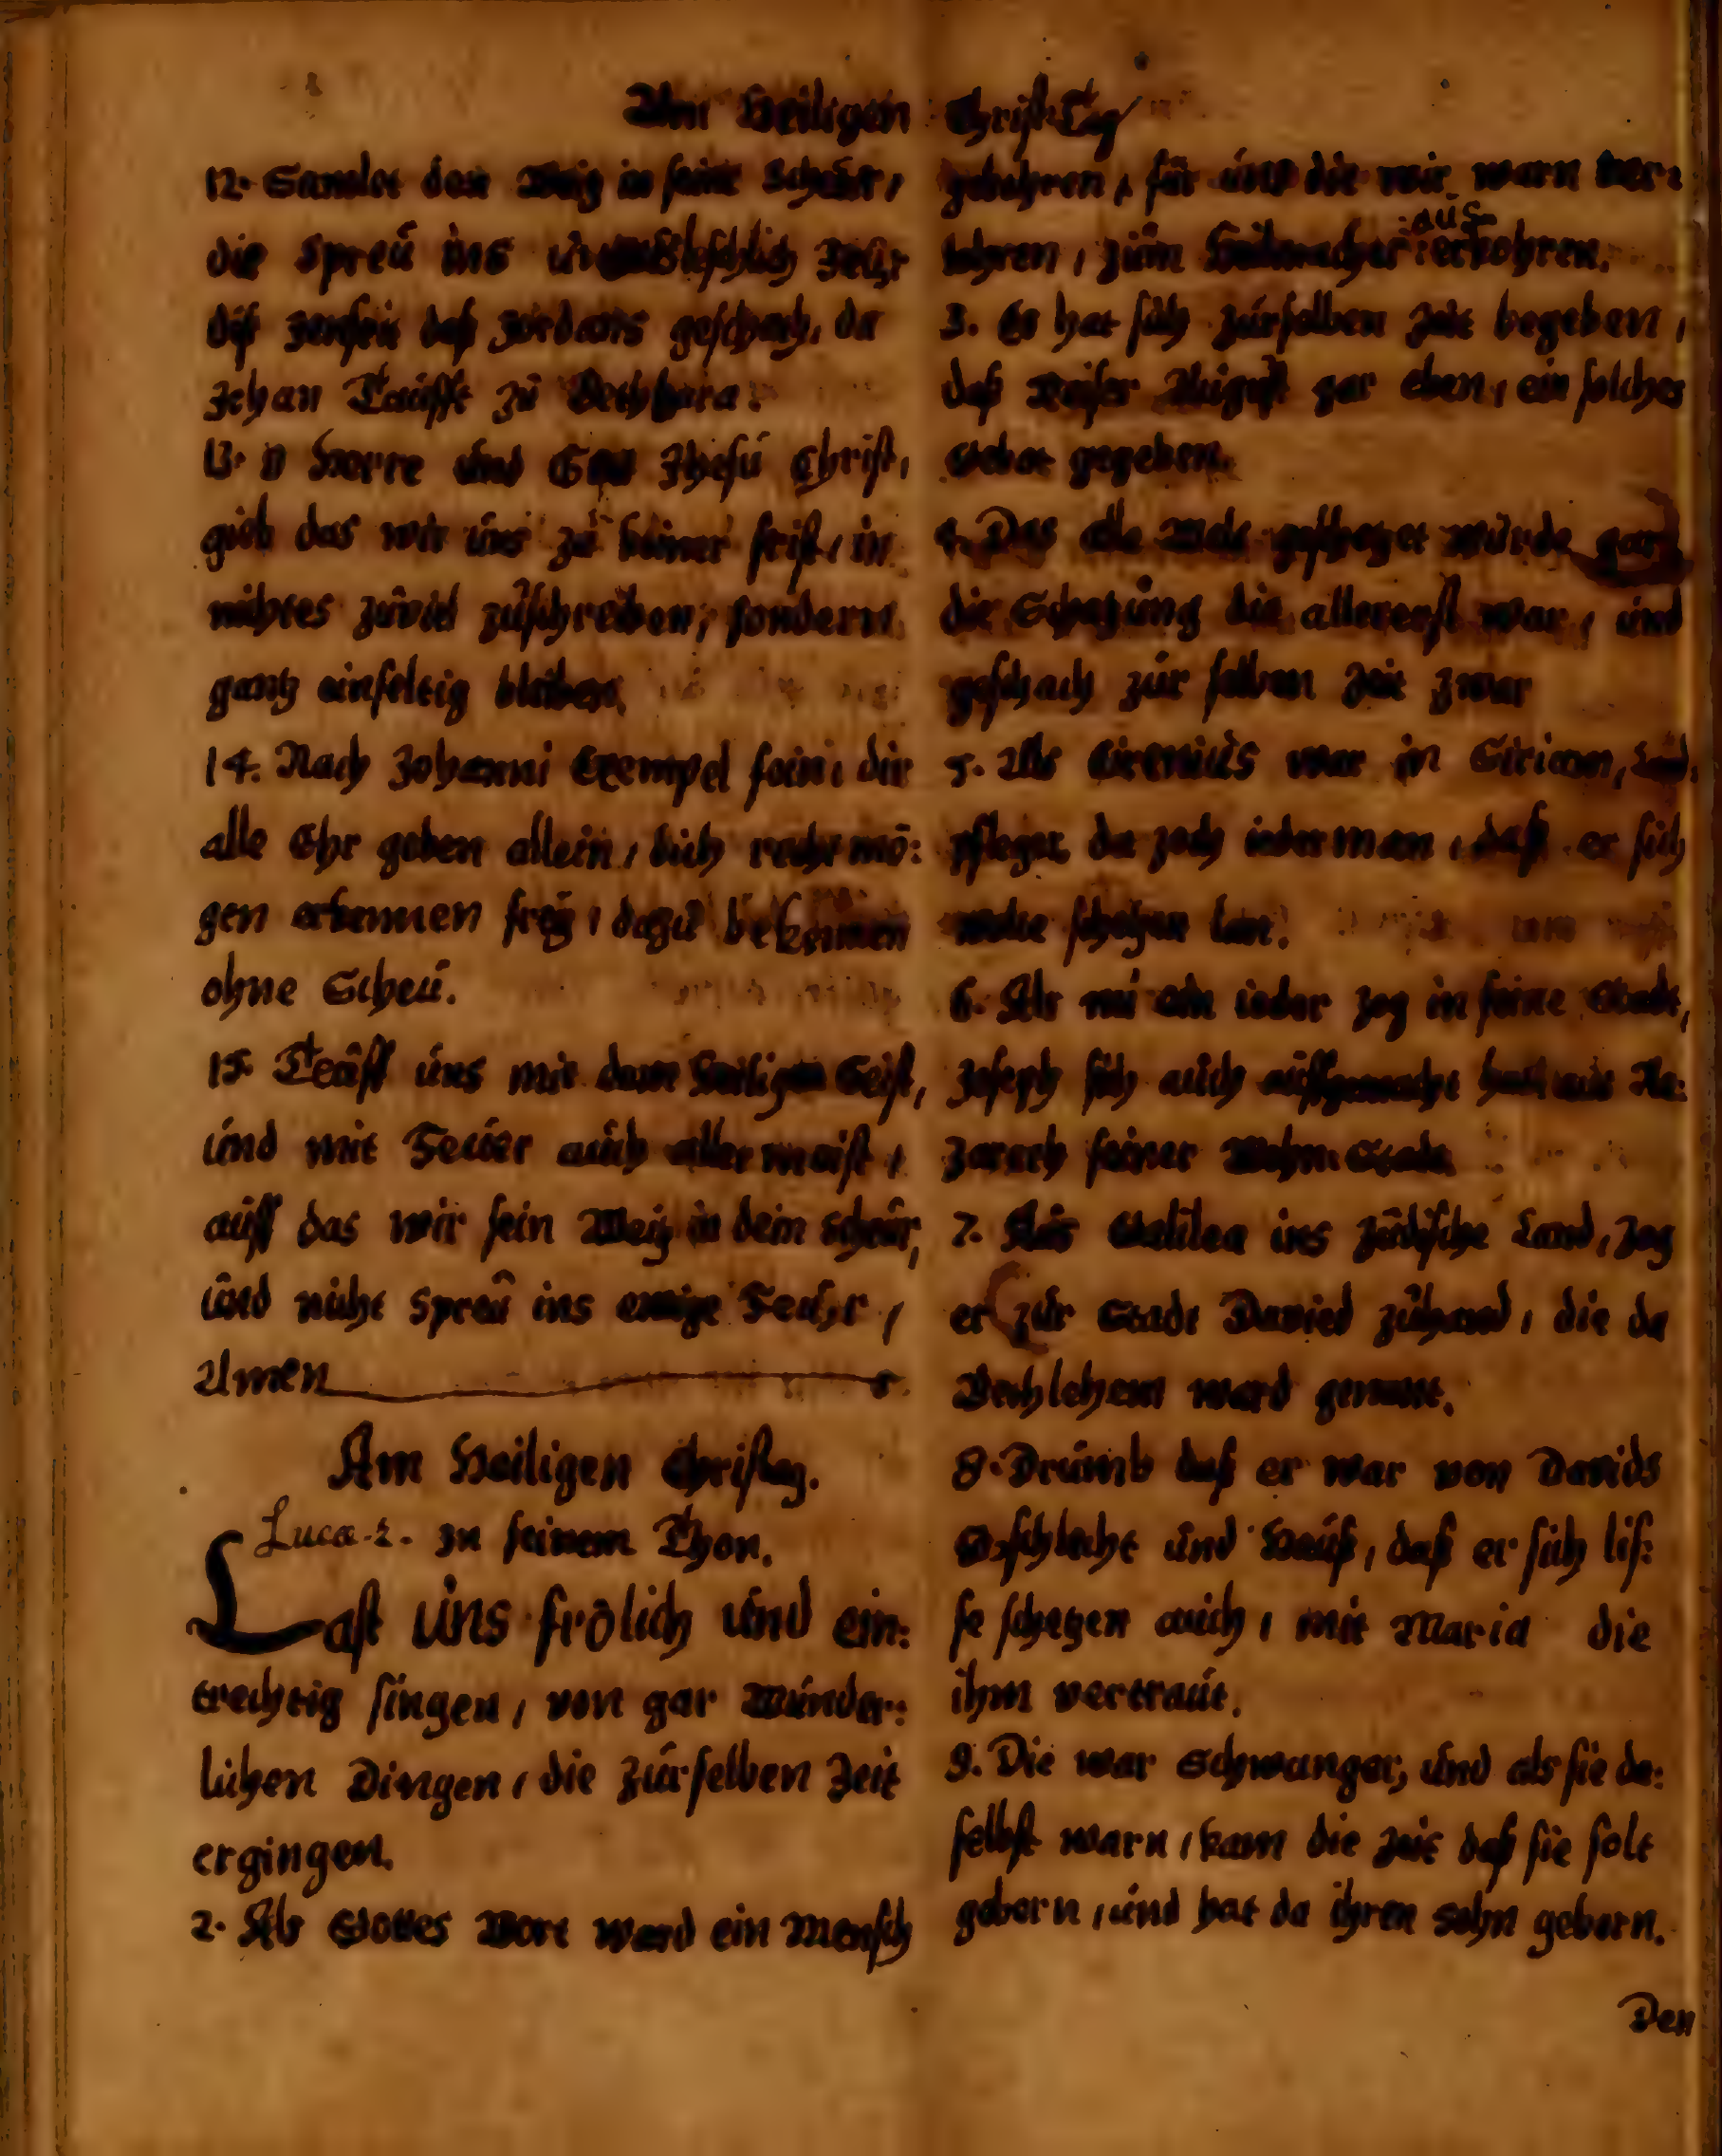 Am Heiligen Christ-Tag
12. Samlet den Weitz in seine Scheur,
die Spreu ins unausleschlich Feur
diß Jenseit deß Jordans geschach, da
Johan Teuffte zu Bethbara.
13. O Herre und Gott Jhesu Christ,
gieb das wir uns zu keiner frist, in
nichtes zuviel zuschreiben, sondern
gantz einfeltig bleiben.
14. Nach Johanni Exempel fein, dir
alle Ehr geben allein, dich recht mö:
gen erkennen frey, dazu bekennen
ohne Scheu.
15. Teuff uns mit dem Heiligen Geist,
und mit Feuer auch allermeist,
auff das wir sein Weitz in dein Scheur,
und nicht Spreu ins ewige Feuhr,
Amen
Am Heiligen Christag.
Luca. 2. In seinem Thon.
Last uns frölich und ein:
trechtig singen, von gar Wunder:
lichen Dingen, die zurselben Zeit
ergingen.
2. Als Gottes Wort ward ein Mensch
gebohren, für uns die wir warn ver:
lohren, zum Heilmacher auserkohren.
3. Es hat sich zurselben Zeit begeben,
daß Keiser August gar eben, ein solches
Gebot gegeben.
4. Das alle Welt geschetzet würde gar
die Schatzung die allererst war, und
geschach zur selben Zeit zwar
5. Als Cirenius war in Sirian, Land:
pfleger, da zoch iederman, daß er sich
wolte schetzen lan.
6. Als nu ein ieder zog in seine Stadt,
Joseph sich auch auffgemacht hatt aus Na:
zareth seiner Wohn Stadt.
7. Aus Galilea ins Jüdische Land, zog
er zur Stadt David zuhand, die da
Bethlehem ward genant.
8. Drumb daß er war von Davids
Geschlecht und Hauß, daß er sich liß:
se schetzen auch, mit Maria die
ihm vertraut.
9. Die war Schwanger, und als sie da:
selbst warn, kam die Zeit daß sie solt
gebern, und hat da ihren Sohn gebern.
Den